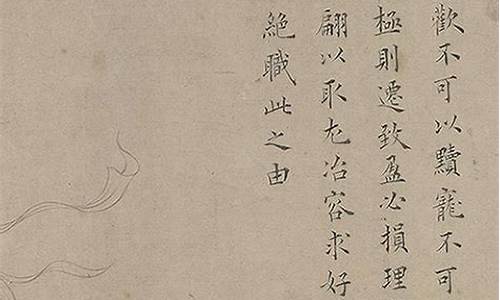 歡不可以黷寵不可
極則遷致盈必損理
翩以取尤冶容求好
絕職此之由